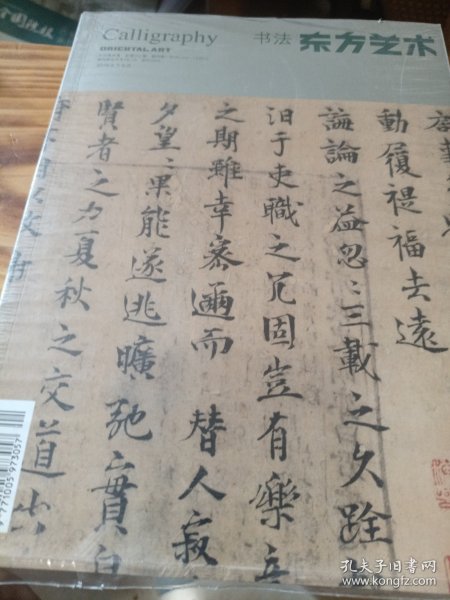 Calligraphy
ORIENTAL ART
书法 东方艺术
動履禔福去遠
誨論之益忽〻三載之久跧
汨于吏職之冗固豈有樂
之期雖幸密邇而替人寂
夕望〻果能遂逃曠弛實自
賢者之力夏秋之交道出
9771005973057
孔夫子旧书网
www.kongfz.com